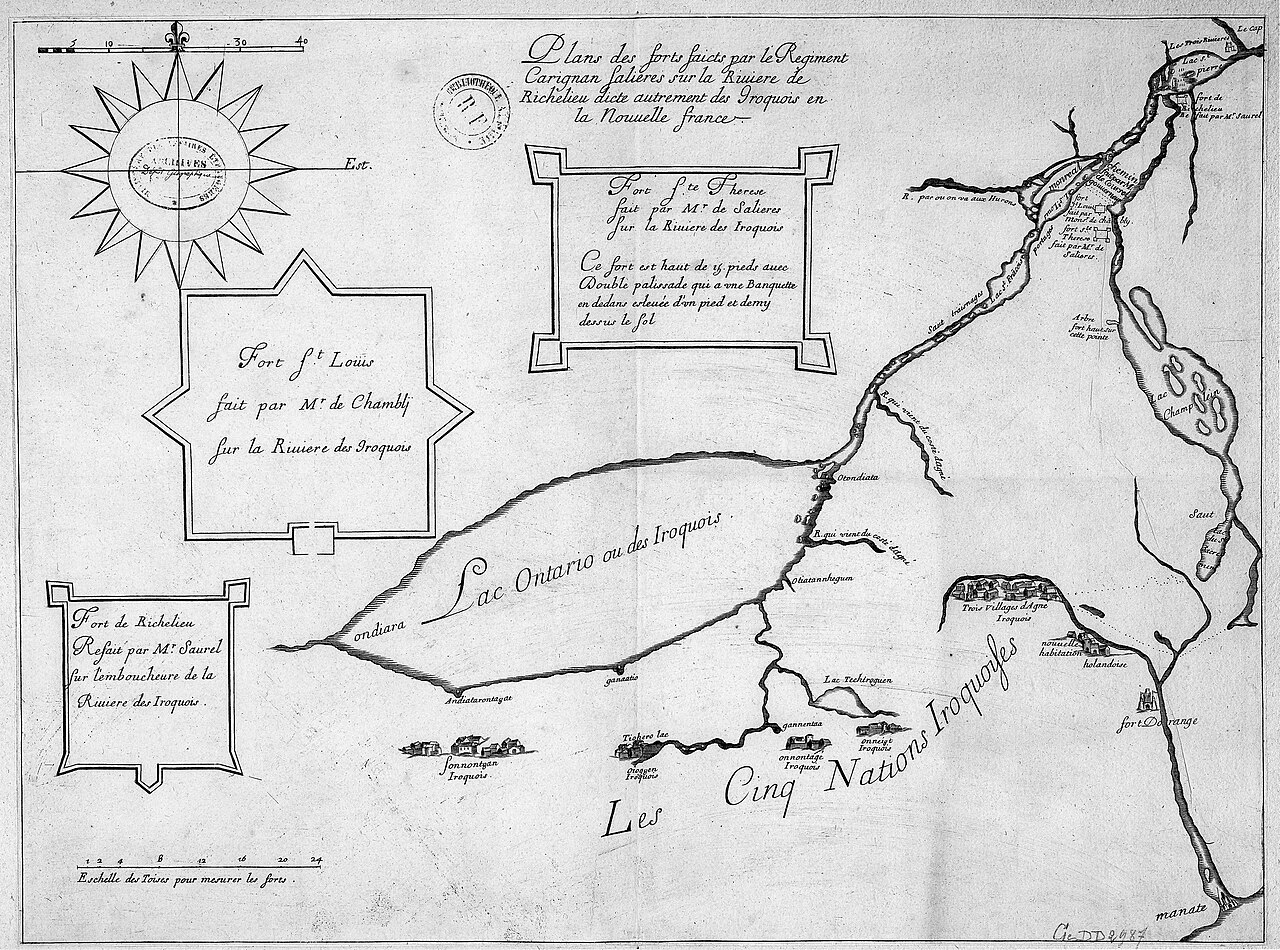 5 10 30 40
Est.
Plans des forts faicts par le Regiment
Carignan Salieres sur la Riuiere de
Richelieu dicte autrement des Iroquois en
la Nouuelle france
ARCHIVES
Fort Ste Therese
fait par Mr de Salieres
sur la Riuiere des Iroquois
Ce fort est haut de 15 pieds auec
Double palissade qui a vne Banquette
en dedans esleuée d'vn pied et demy
dessus le sol
Fort St Loüis
fait par Mr de Chamblj
sur la Riuiere des Iroquois
Fort de Richelieu
Refait par Mr Saurel
sur l'emboucheure de la
Riuiere des Iroquois.
1 2 4 8 12 16 20 24
Eschelle des Toises pour mesurer les forts.
Le Cap
Les Trois Riuieres
Lac St
pierre
fort de
Richelieu
Refait par Mr Saurel
montreal
R. par ou on va aux Hurons
fort
St Louis
fait par
Monsr de chambly
fort Ste
Therese
fait par Mr de
Salieres.
portages
Lac St Francois
Saut trainages
Arbre
fort haut sur
cette pointe
Lac
Champlein
Saut
R. qui vient du costé d'Agné
Otondiata
R. qui vient du costé d'Agné
Otiatannhegum
Lac Ontario ou des Iroquois.
ondiara
Andiatarontagat
ganaatio
Lac Techiroguen
gannentaa
Tichero lac
Sonnontoan
Iroquois.
Oioguen
Iroquois
onnontagé
Iroquois
onneigt
Iroquois
Trois Villages d'Agné
Iroquois
nouuelle
habitation
holandoise
fort D'orange
Les Cinq Nations Iroquoises
manate
Ge DD 2987